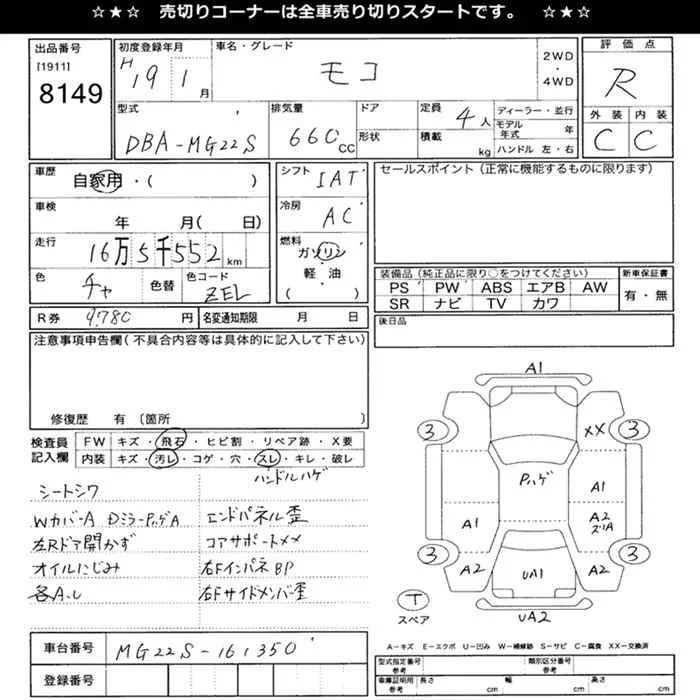 ☆★☆ 売切りコーナーは全車売り切りスタートです。 ☆★☆
出品番号
[1911]
8149
初度登録年月
H19 1月
車名・グレード
モコ
2WD
・
4WD
評価点
R
外装 内装
C C
型式
DBA-MG22S
排気量
660cc
ドア
形状
定員
4人
積載
kg
ディーラー・並行
モデル年式 年
ハンドル 左・右
車歴
自家用・( )
車検
年 月( 日)
走行
16万5千552km
色
チャ
色替
色コード
ZEL
シフト
IAT
冷房
AC
燃料
ガソリン
軽・油
( )
セールスポイント(正常に機能するものに限ります)
装備品(純正品に限り○をつけてください)
PS PW ABS エアB AW
SR ナビ TV カワ
新車保証書
有・無
R券 9780円
名変通知期限 月 日
後日品
注意事項申告欄(不具合内容等は具体的に記入して下さい)
修復歴 有(箇所 )
検査員記入欄
FW キズ・飛石・ヒビ割・リペア跡・X要
内装 キズ・汚レ・コゲ・穴・スレ・キレ・破レ
ハンドルハゲ
シートシワ
Wカバ-A DミラーPハゲA
左Rドア開かず
オイルにじみ
各A.L
エンドパネル歪
コアサポートメメ
右Fインパネ BP
右Fサイドメンバー歪
A1
3 3
XX
Pハゲ
A1
A1
A2
ズリA
3 3
A2 UA1 A2
T
スペア
UA2
A-キズ E-エクボ U-凹み W-補修跡 S-サビ C-腐食 XX-交換済
車台番号
MG22S-161350
登録番号
型式指定番号
参考
類別区分番号
参考
車庫証明用
参考
長さ cm 幅 cm 高さ cm